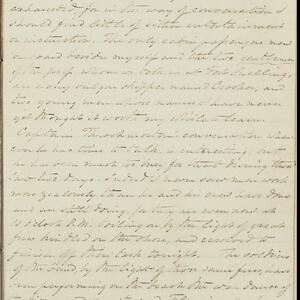 exhausted, for in the way of conversation I
should find little of either entertainment
or instruction. The only cabin passengers now
on board besides myself and but two gentlemen
of the
are a
five young men whose names I have never
yet thought it worth my while to learn.
Captain Throckmorton's conversation when
ever he has time to talk, is interesting, but
he has been much too busy for that during these
last two days. Indeed I never saw men work
more zealously than he and his crew have done
and are still doing, for they are even now at
10 o'clock P.M. toiling on by the light of great
fires kindled on the shore, and resolved to
finish off their task tonight. The soldiers
of the band, by the light of these same fires, have
been performing on the